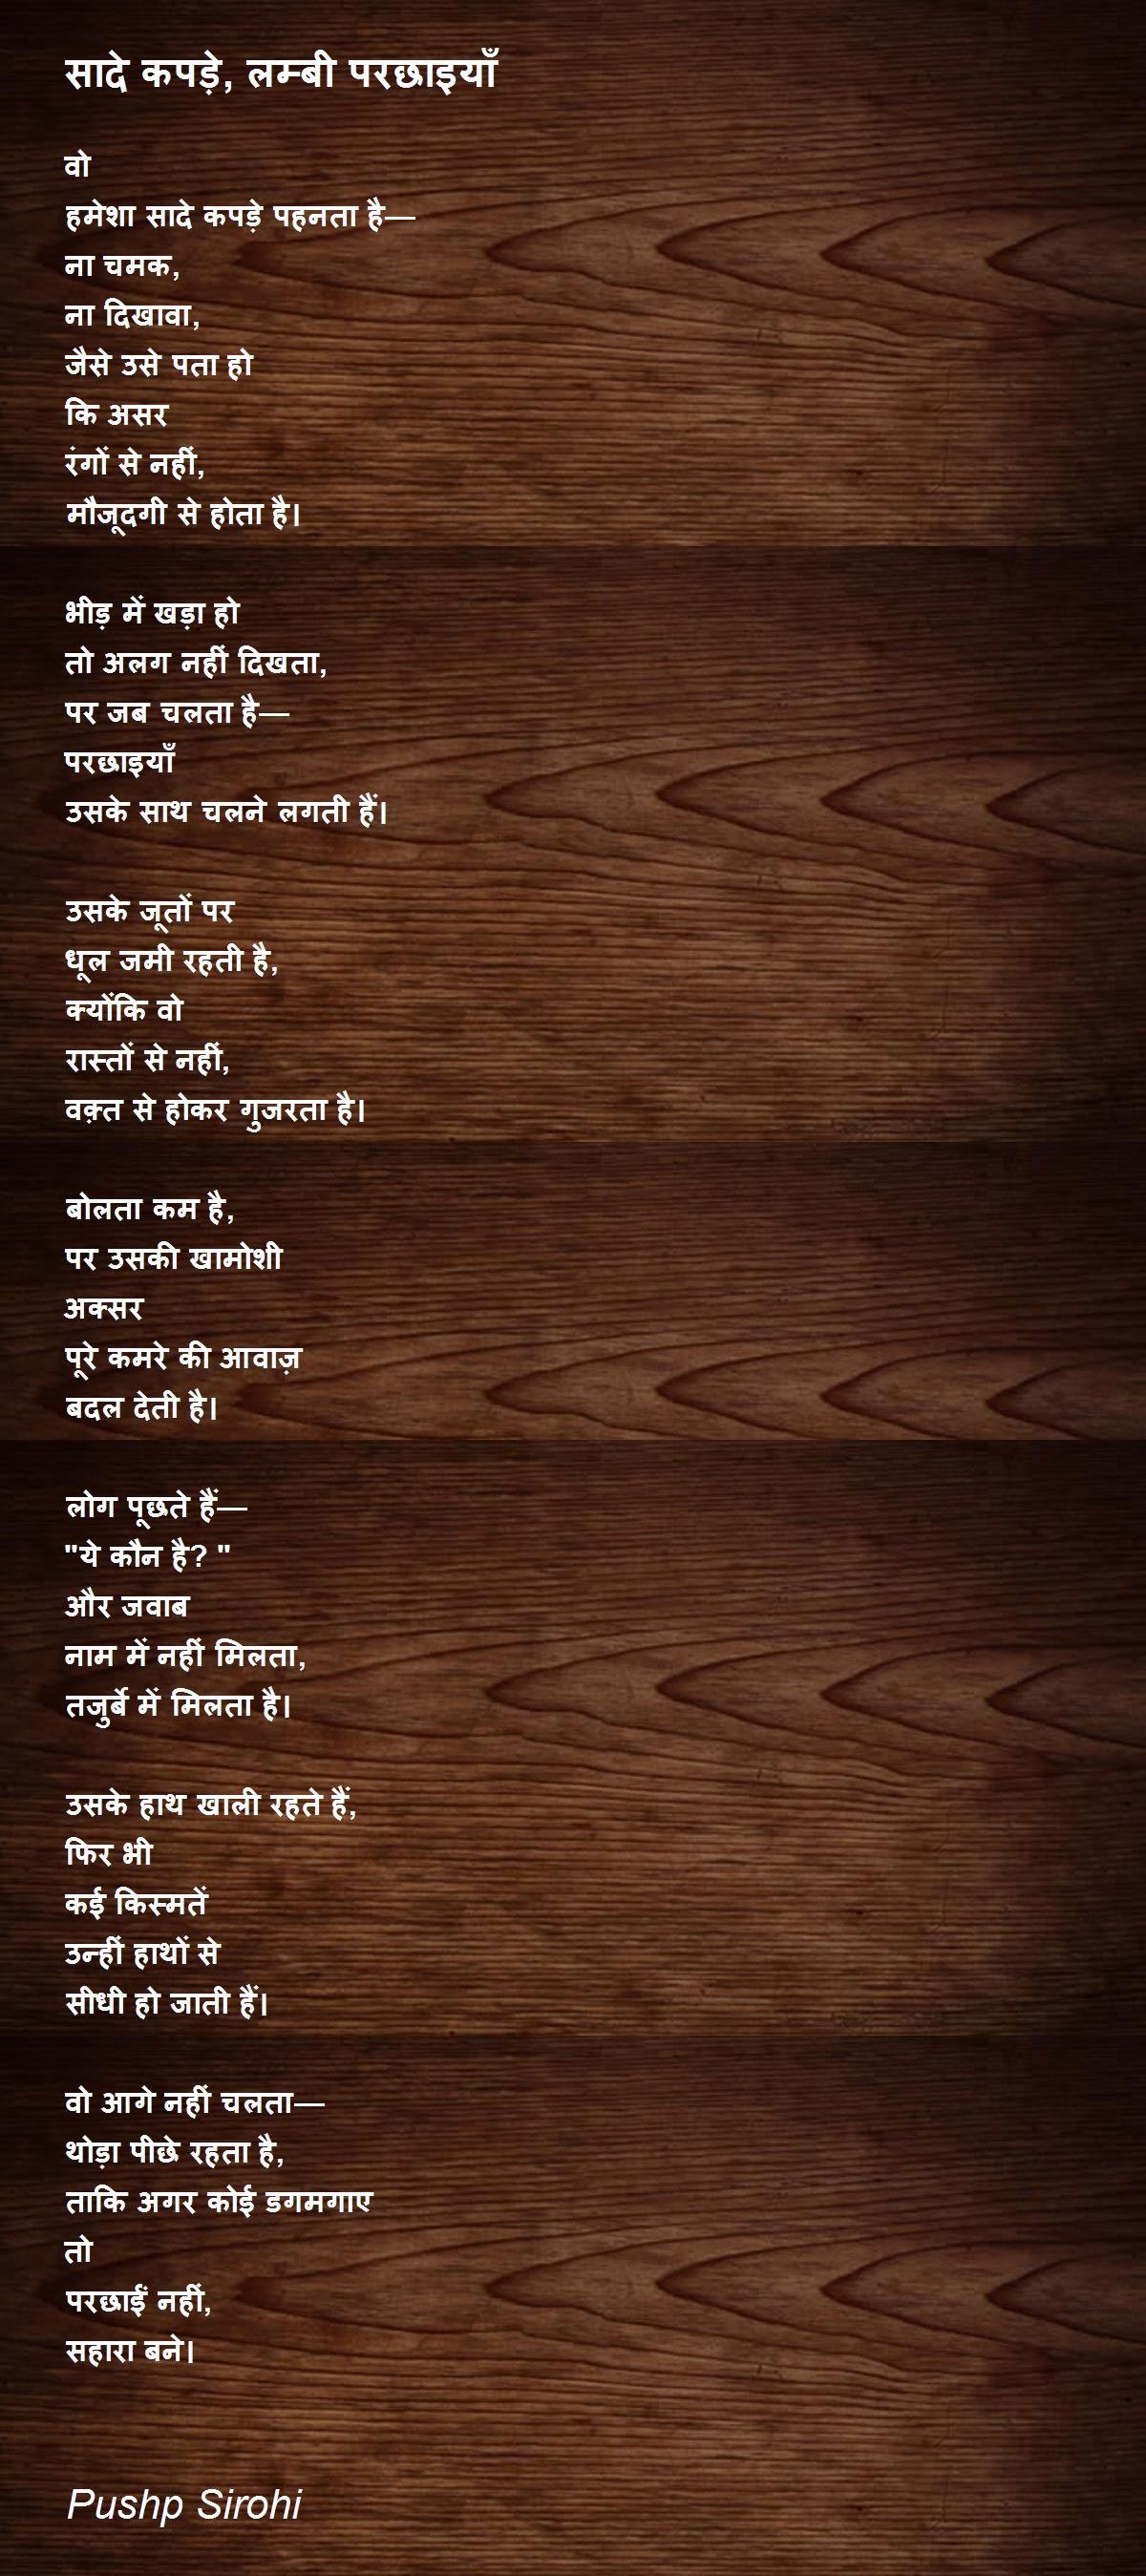 सादे कपड़े, लम्बी परछाइयाँ
वो
हमेशा सादे कपड़े पहनता है—
ना चमक,
ना दिखावा,
जैसे उसे पता हो
कि असर
रंगों से नहीं,
मौजूदगी से होता है।
भीड़ में खड़ा हो
तो अलग नहीं दिखता,
पर जब चलता है—
परछाइयाँ
उसके साथ चलने लगती हैं।
उसके जूतों पर
धूल जमी रहती है,
क्योंकि वो
रास्तों से नहीं,
वक़्त से होकर गुजरता है।
बोलता कम है,
पर उसकी खामोशी
अक्सर
पूरे कमरे की आवाज़
बदल देती है।
लोग पूछते हैं—
"ये कौन है? "
और जवाब
नाम में नहीं मिलता,
तजुर्बे में मिलता है।
उसके हाथ खाली रहते हैं,
फिर भी
कई किस्मतें
उन्हीं हाथों से
सीधी हो जाती हैं।
वो आगे नहीं चलता—
थोड़ा पीछे रहता है,
ताकि अगर कोई डगमगाए
तो
परछाईं नहीं,
सहारा बने।
Pushp Sirohi